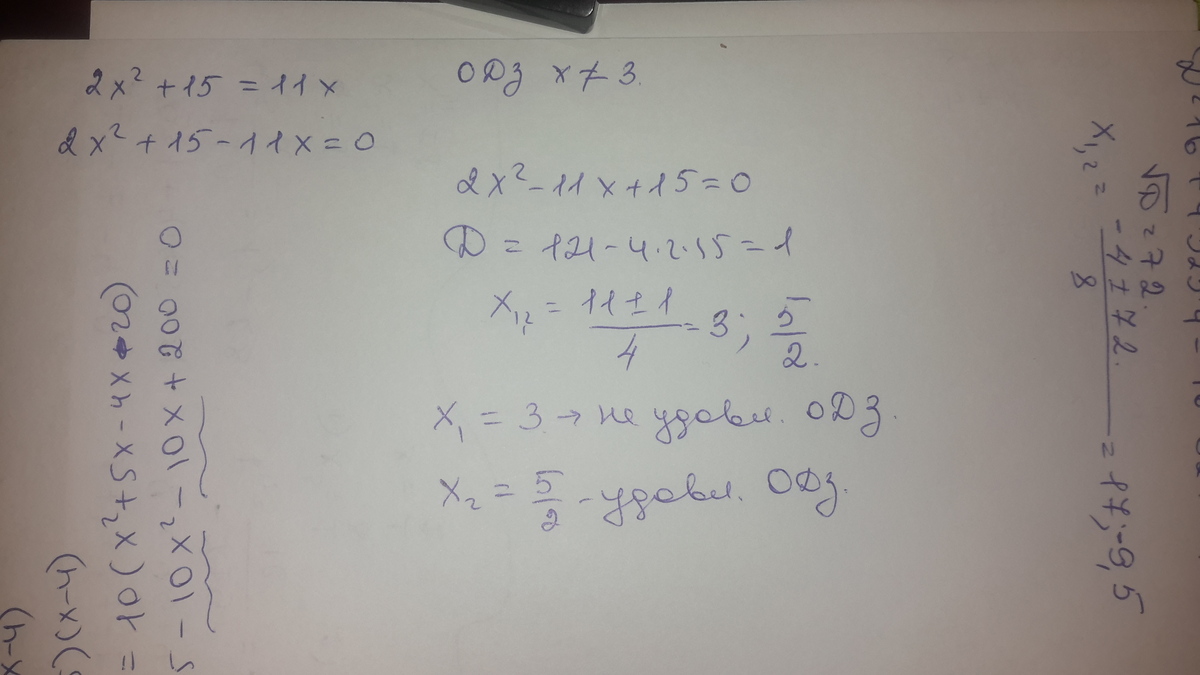 2x² + 15 = 11x
ОДЗ x ≠ 3.
2x² + 15 - 11x = 0
2x² - 11x + 15 = 0
D = 121 - 4·2·15 = 1
x₁,₂ = (11 ± 1)/4 = 3; 5/2.
x₁ = 3 → не удовл. ОДЗ.
x₂ = 5/2 - удовл. ОДЗ.
x-4)
)(x-4)
= 10(x² + 5x - 4x - 20)
5 - 10x² - 10x + 200 = 0
√D = 72.
x₁,₂ = (-4 ± 72)/8 = 17; -9,5